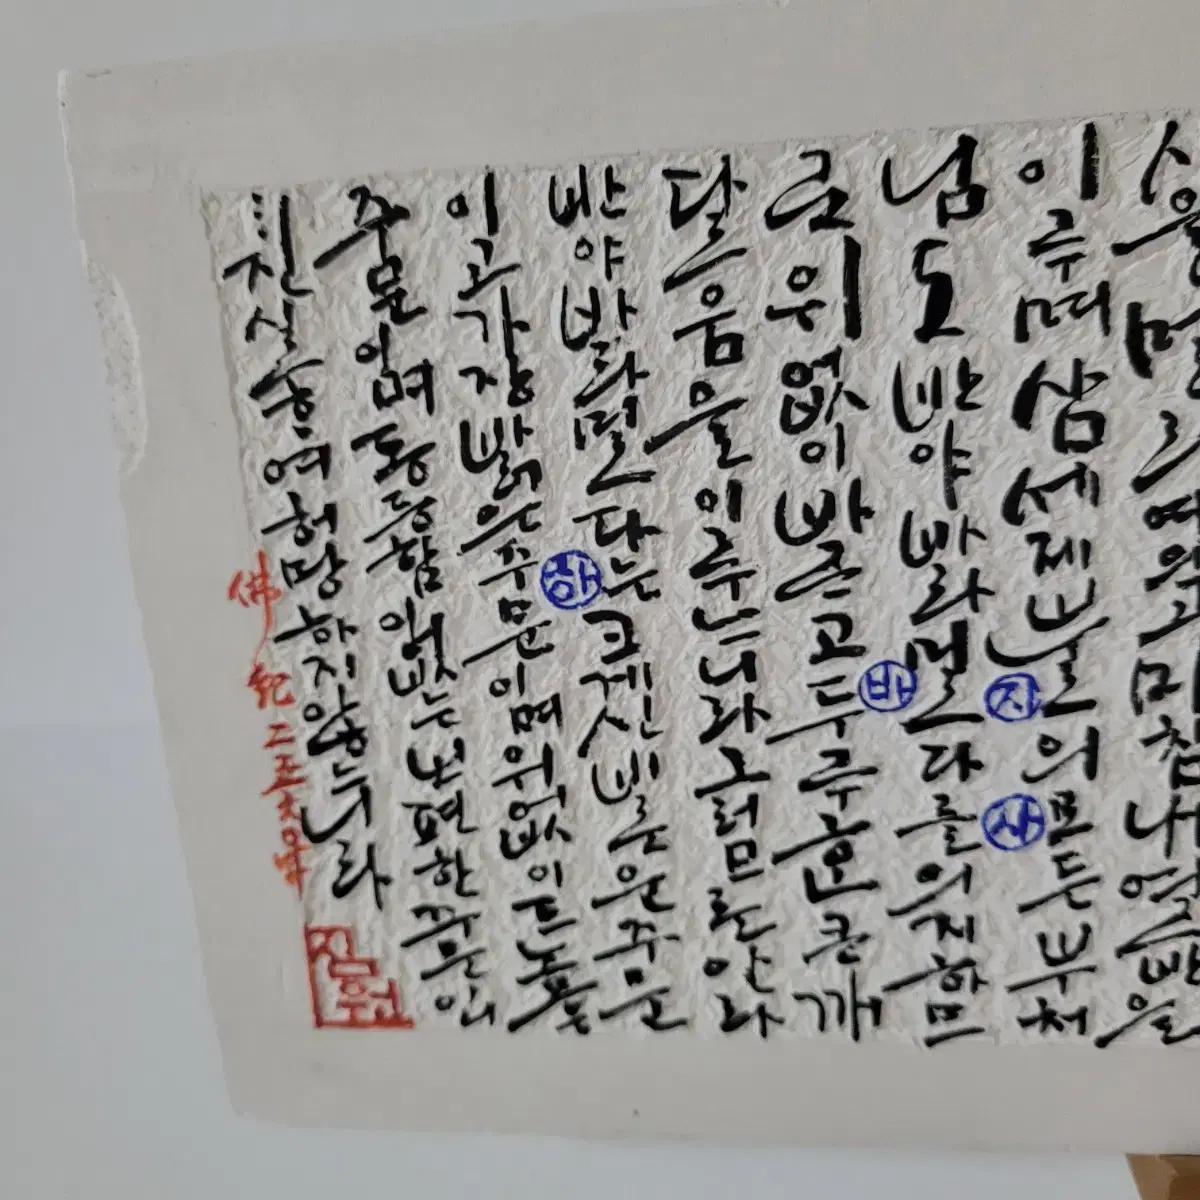 상을멀리여의고마침내열반을
이루며삼세제불의모든부처
님도반야바라밀다를의지하므
로위없이바르고두루높은큰깨
달음을이루느니라그러므로알라
반야바라밀다는크게신비로운주문
이고가장밝은주문이며위없이높은
주문이며동등함이없는 편한주문이니
진실하여허망하지않느니라
佛紀二五六〇年
자
사
바
하